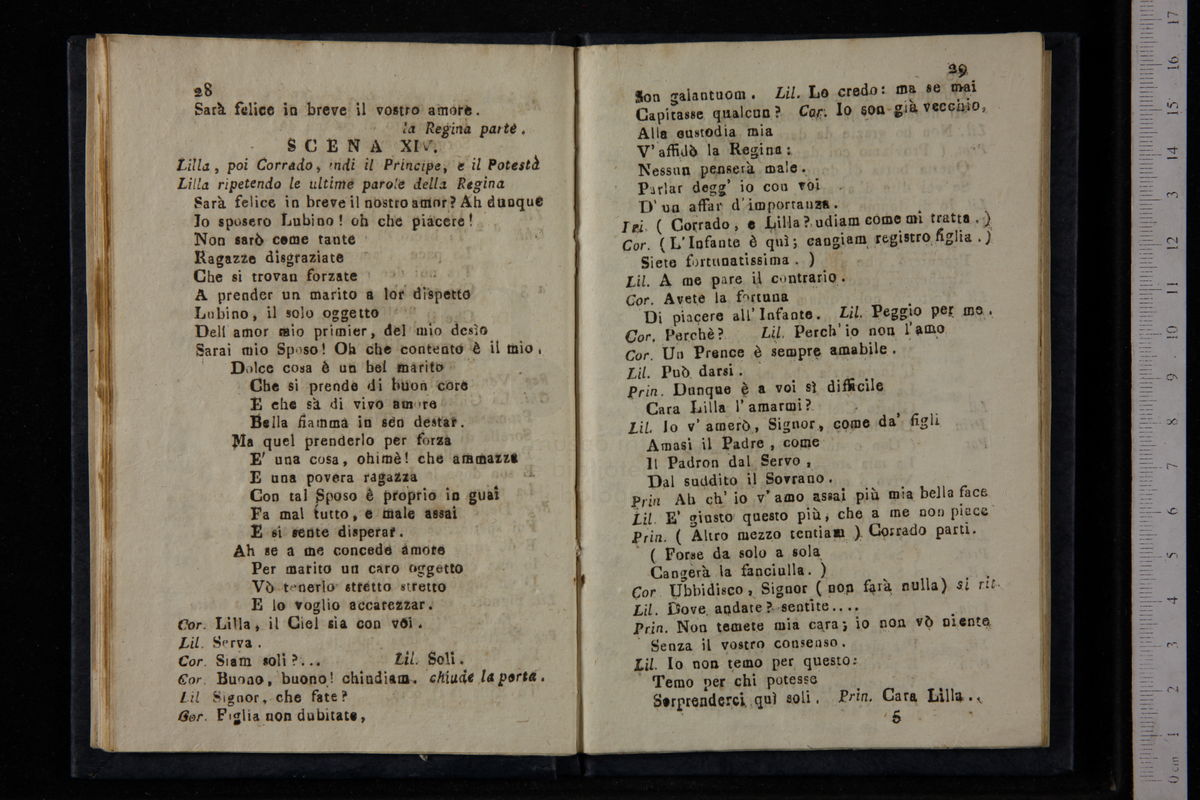 28
Sarà felice in breve il vostro amore.
la Regina parte.
SCENA XIV.
Lilla, poi Corrado, indi il Principe, e il Potestà
Lilla ripetendo le ultime parole della Regina
Sarà felice in breve il nostro amor? Ah dunque
Io sposero Lubino! oh che piacere!
Non sarò come tante
Ragazze disgraziate
Che si trovan forzate
A prender un marito a lor dispetto
Lubino, il solo oggetto
Dell amor mio primier, del mio desio
Sarai mio Sposo! Oh che contento è il mio.
Dolce cosa è un bel marito
Che si prende di buon core
E che sà di vivo amore
Bella fiamma in sen destar.
Ma quel prenderlo per forza
E' una cosa, ohimè! che ammazza
E una povera ragazza
Con tal Sposo è proprio in guai
Fa mal tutto, e male assai
E si sente disperar.
Ah se a me concede amore
Per marito un caro oggetto
Vò tenerlo stretto stretto
E lo voglio accarezzar.
Cor. Lilla, il Ciel sia con voi.
Lil. Serva.
Cor. Siam soli?... Lil. Soli.
Cor. Buono, buono! chindiam. chiude la porta.
Lil Signor, che fate?
Cor. Figlia non dubitate,
29
Son galantuom. Lil. Lo credo: ma se mai
Capitasse qualcun? Cor. Io son già vecchio,
Alla custodia mia
V' affidò la Regina:
Nessun penserà male.
Parlar degg' io con voi
D' un affar d'importanza.
Pri. ( Corrado, e Lilla? udiam come mi tratta. )
Cor. (L' Infante è quì; cangiam registro figlia. )
Siete fortunatissima. )
Lil. A me pare il contrario.
Cor. Avete la fortuna
Di piacere all' Infante. Lil. Peggio per me.
Cor. Perchè? Lil. Perch' io non l' amo
Cor. Un Prence è sempre amabile.
Lil. Può darsi.
Prin. Dunque è a voi sì difficile
Cara Lilla l' amarmi?
Lil. Io v' amerò, Signor, come da' figli
Amasi il Padre, come
Il Padron dal Servo,
Dal suddito il Sovrano.
Prin Ah ch' io v' amo assai più mia bella face
Lil. E' giusto questo più, che a me non piece
Prin. ( Altro mezzo tentiam ) Corrado parti.
( Forse da solo a sola
Cangerà la fanciulla. )
Cor Ubbidisco, Signor (non farà nulla) si rit.
Lil. Dove andate? sentite....
Prin. Non temete mia cara; io non vò niente
Senza il vostro consenso.
Lil. Io non temo per questo:
Temo per chi potesse
Sorprenderci quì soli. Prin. Cara Lilla..
5
0 cm 1 2 3 4 5 6 7 8 9 10 11 12 13 14 15 16 17